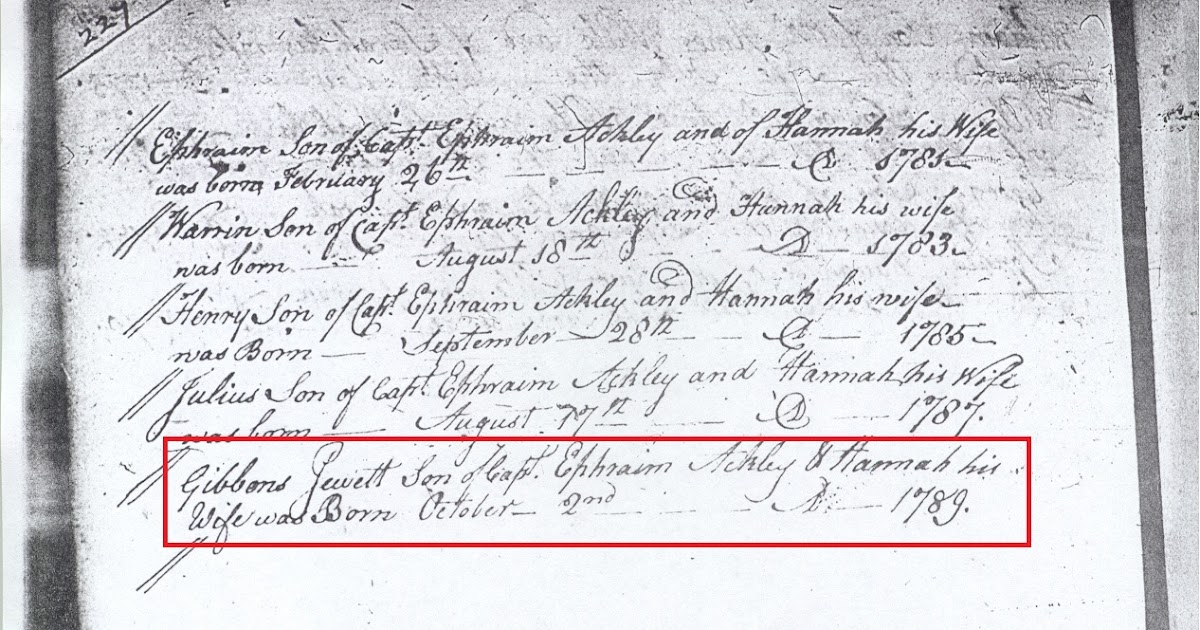 227
Ephraim Son of Capt. Ephraim Ackley and of Hannah his Wife
was born February 26th A 1781
Warrin Son of Capt. Ephraim Ackley and Hannah his wife
was born August 18th A 1783
Henry Son of Capt. Ephraim Ackley and Hannah his wife
was Born September 28th A 1785
Julius Son of Capt. Ephraim Ackley and Hannah his Wife
was born August 17th A 1787.
Gibbons Jewett Son of Capt. Ephraim Ackley & Hannah his
Wife was Born October 2nd A 1789.